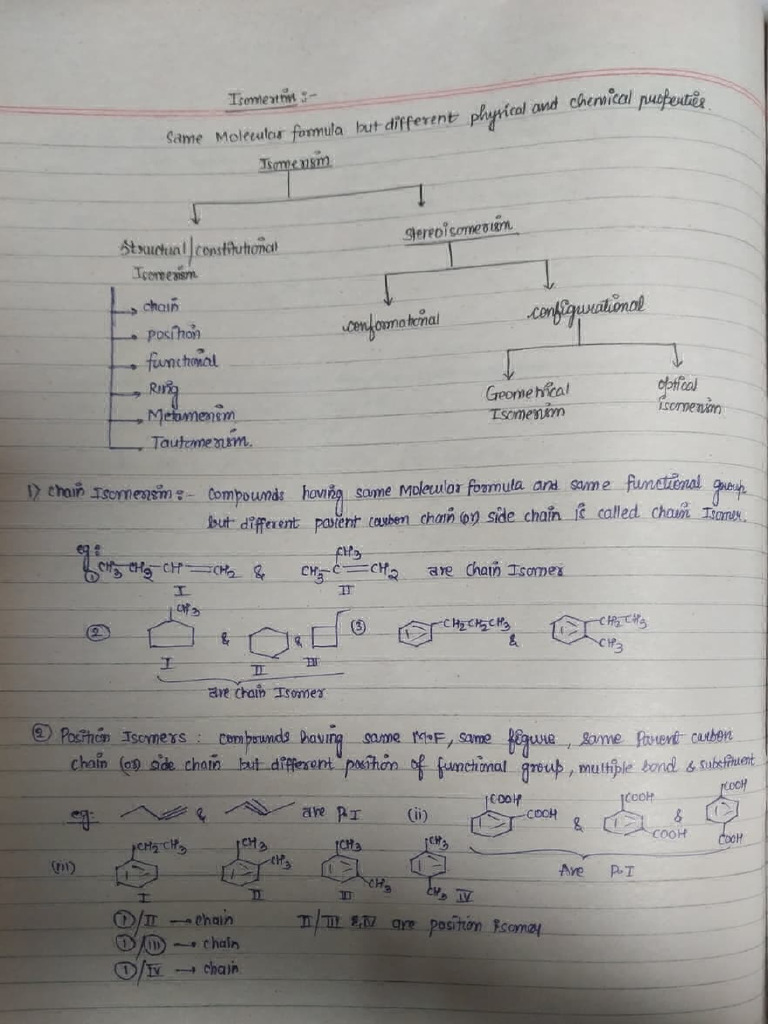 Isomerism :-
Same Molecular formula but different physical and chemical properties.
Isomerism
Structual/constitutional
Isomerism
Stereoisomerism
→ chain
→ position
→ functional
→ Ring
→ Metamerism
Tautomerism.
conformational
configurational
Geometrical
Isomerism
optical
isomerism
1) Chain Isomerism :- compounds having same Molecular formula and same functional group
but different parent carbon chain (or) side chain is called chain Isomer.
eg:
① CH3 CH2-CH=CH2 & CH3-C=CH2 are chain Isomer
CH3
I II
② CH3 & & ③ CH2CH2CH3 & CH2-CH3
CH3
I II III
are chain Isomer
② Position Isomers : compounds having same M.F, same figure, same Parent carbon
chain (or) side chain but different position of functional group, multiple bond & substituent
eg: & are P.I (ii) COOH COOH & COOH COOH & COOH COOH
Are P.I
(iii) CH2-CH3 CH3 CH3 CH3 CH3 CH3 CH3
I II III IV
①/II → chain II/III & IV are position Isomer
①/III → chain
①/IV → chain